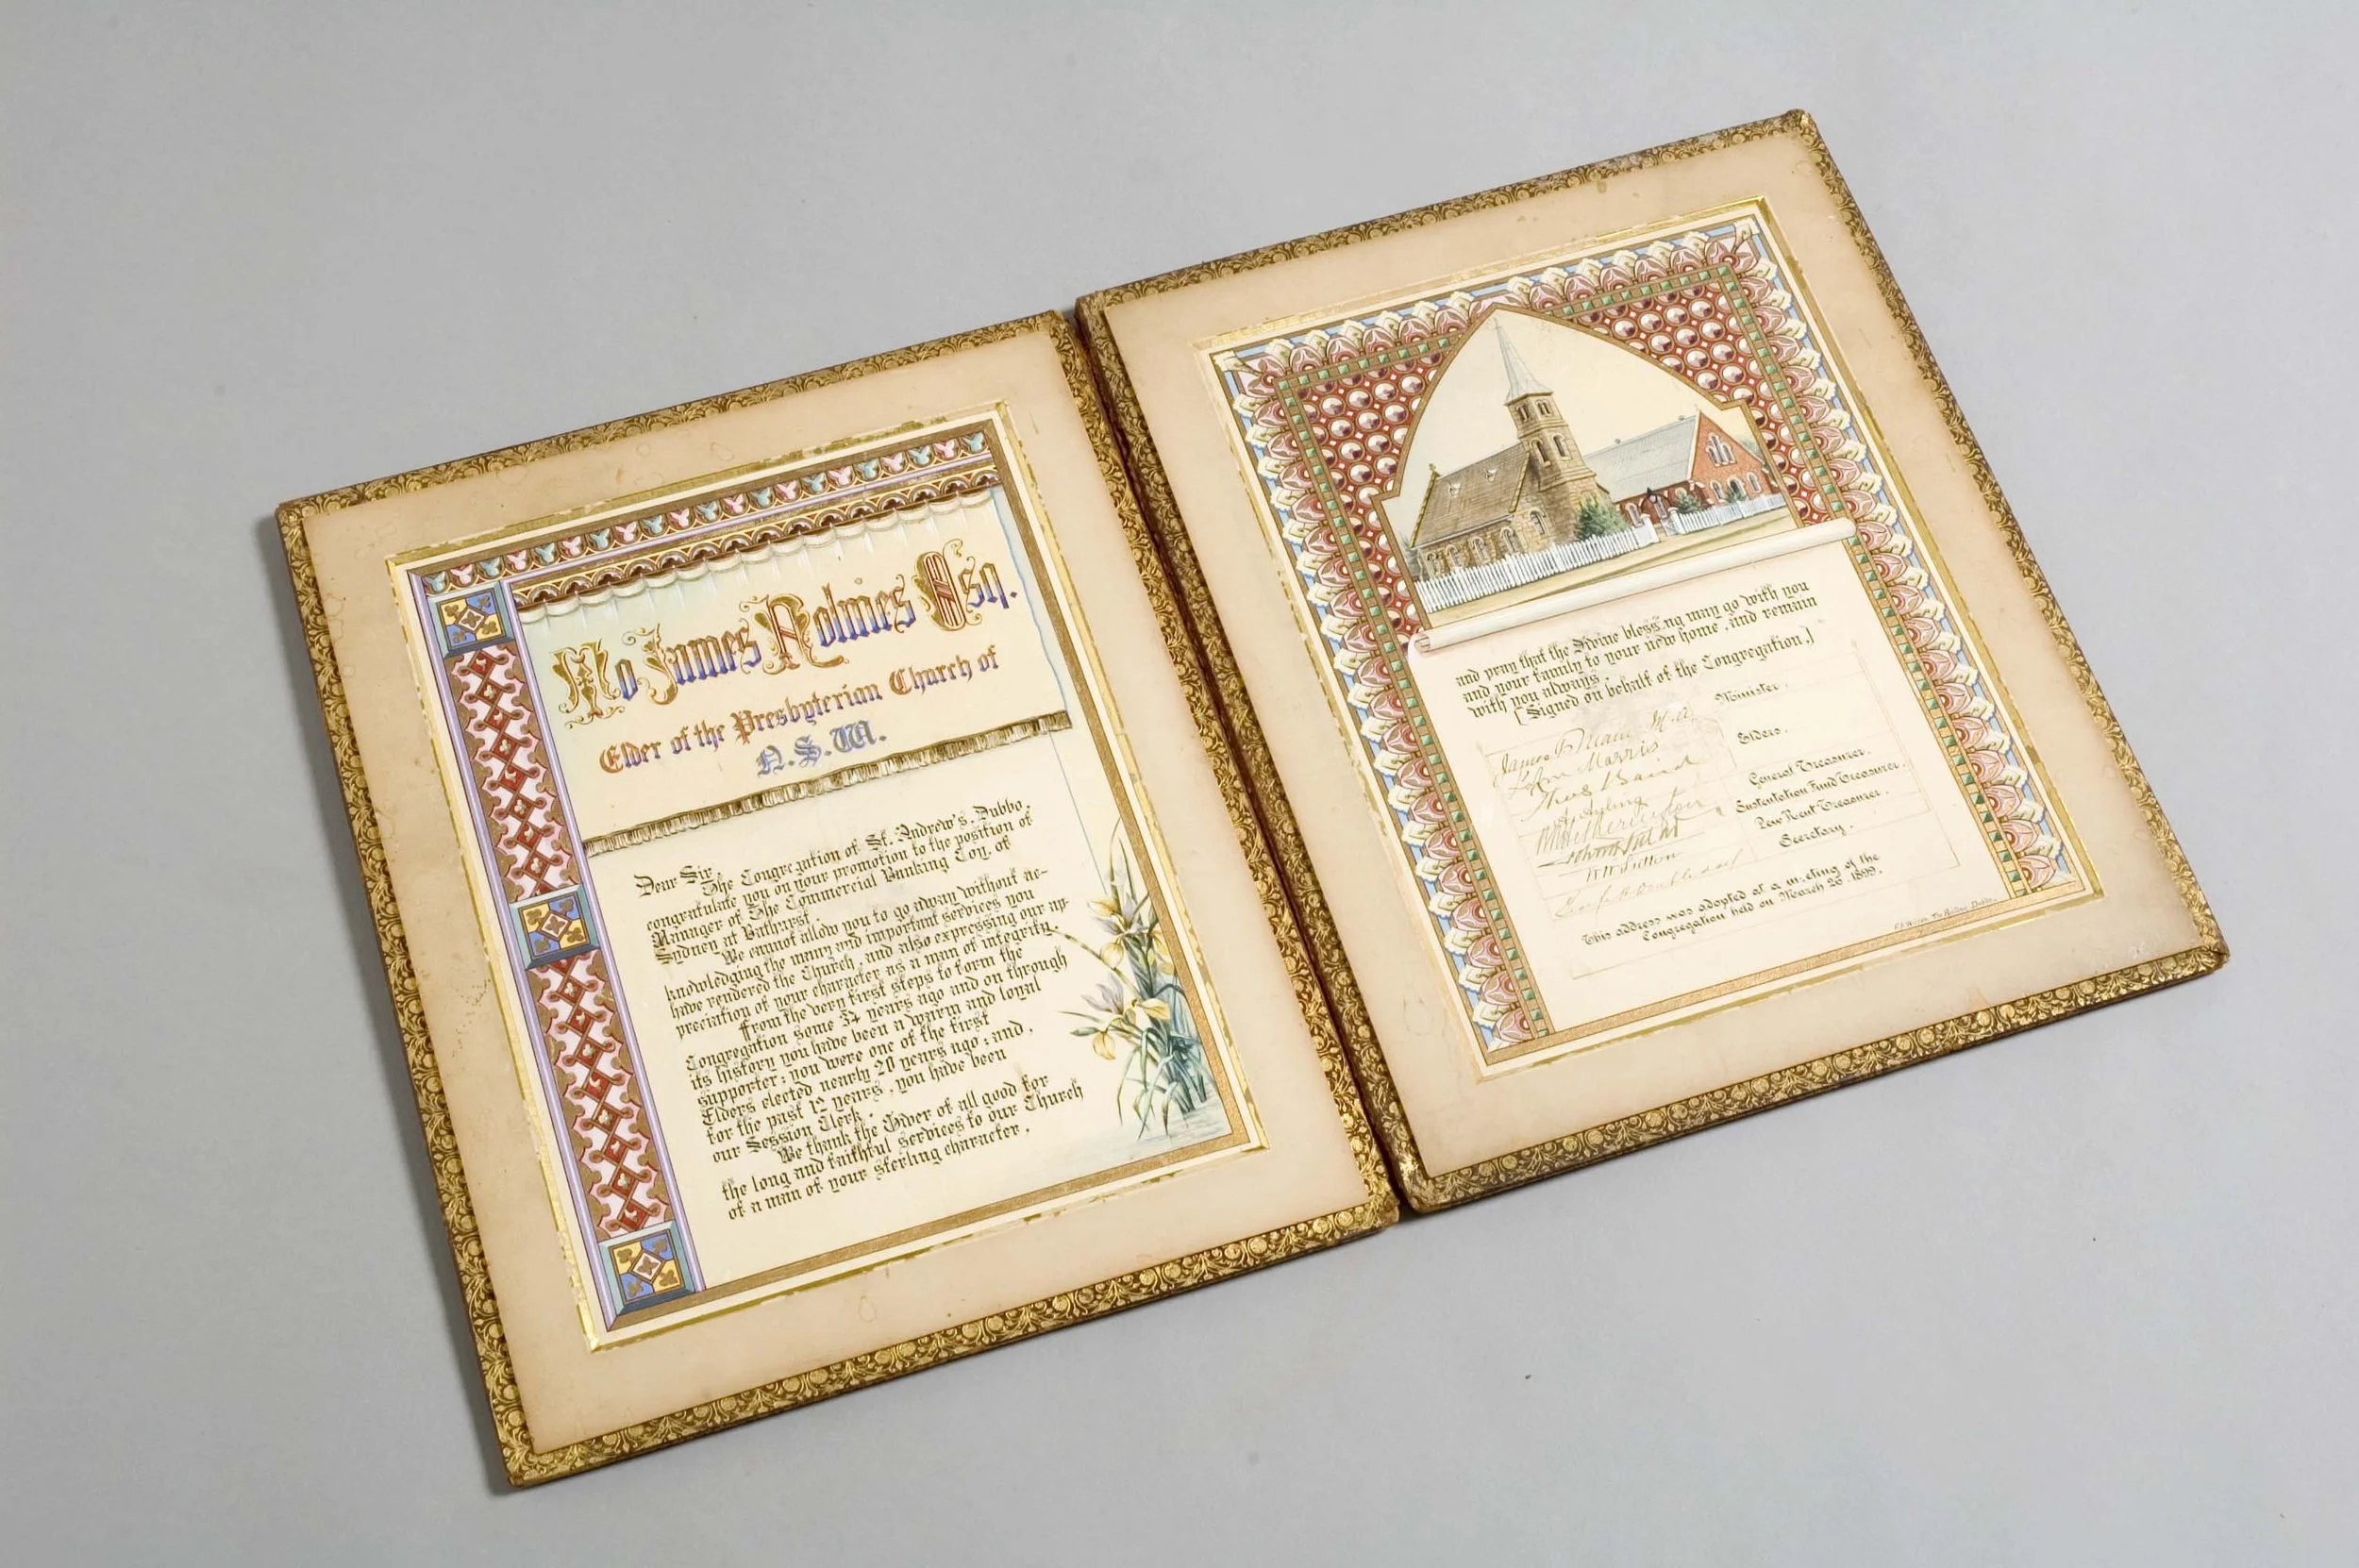 To James Holmes Esq.
Elder of the Presbyterian Church of
N.S.W.
Dear Sir,
The Congregation of St. Andrew's, Dubbo,
congratulate you on your promotion to the position of
Manager of The Commercial Banking Coy. of
Sydney at Bathurst.
We cannot allow you to go away without ac-
knowledging the many and important services you
have rendered the Church, and also expressing our ap-
preciation of your character as a man of integrity.
From the very first steps to form the
Congregation some 34 years ago and on through
its history you have been a warm and loyal
supporter; you were one of the first
Elders elected nearly 20 years ago; and,
for the past 12 years, you have been
our Session Clerk.
We thank the Giver of all good for
the long and faithful services to our Church
of a man of your sterling character,
and pray that the Divine blessing may go with you
and your family to your new home, and remain
with you always.
(Signed on behalf of the Congregation)
James M.A. Minister.
Wm Morris
Thos Baird Elders.
General Treasurer.
Sustentation Fund Treasurer.
Pew Rent Treasurer.
Secretary.
This address was adopted at a meeting of the
Congregation held on March 26, 1899.